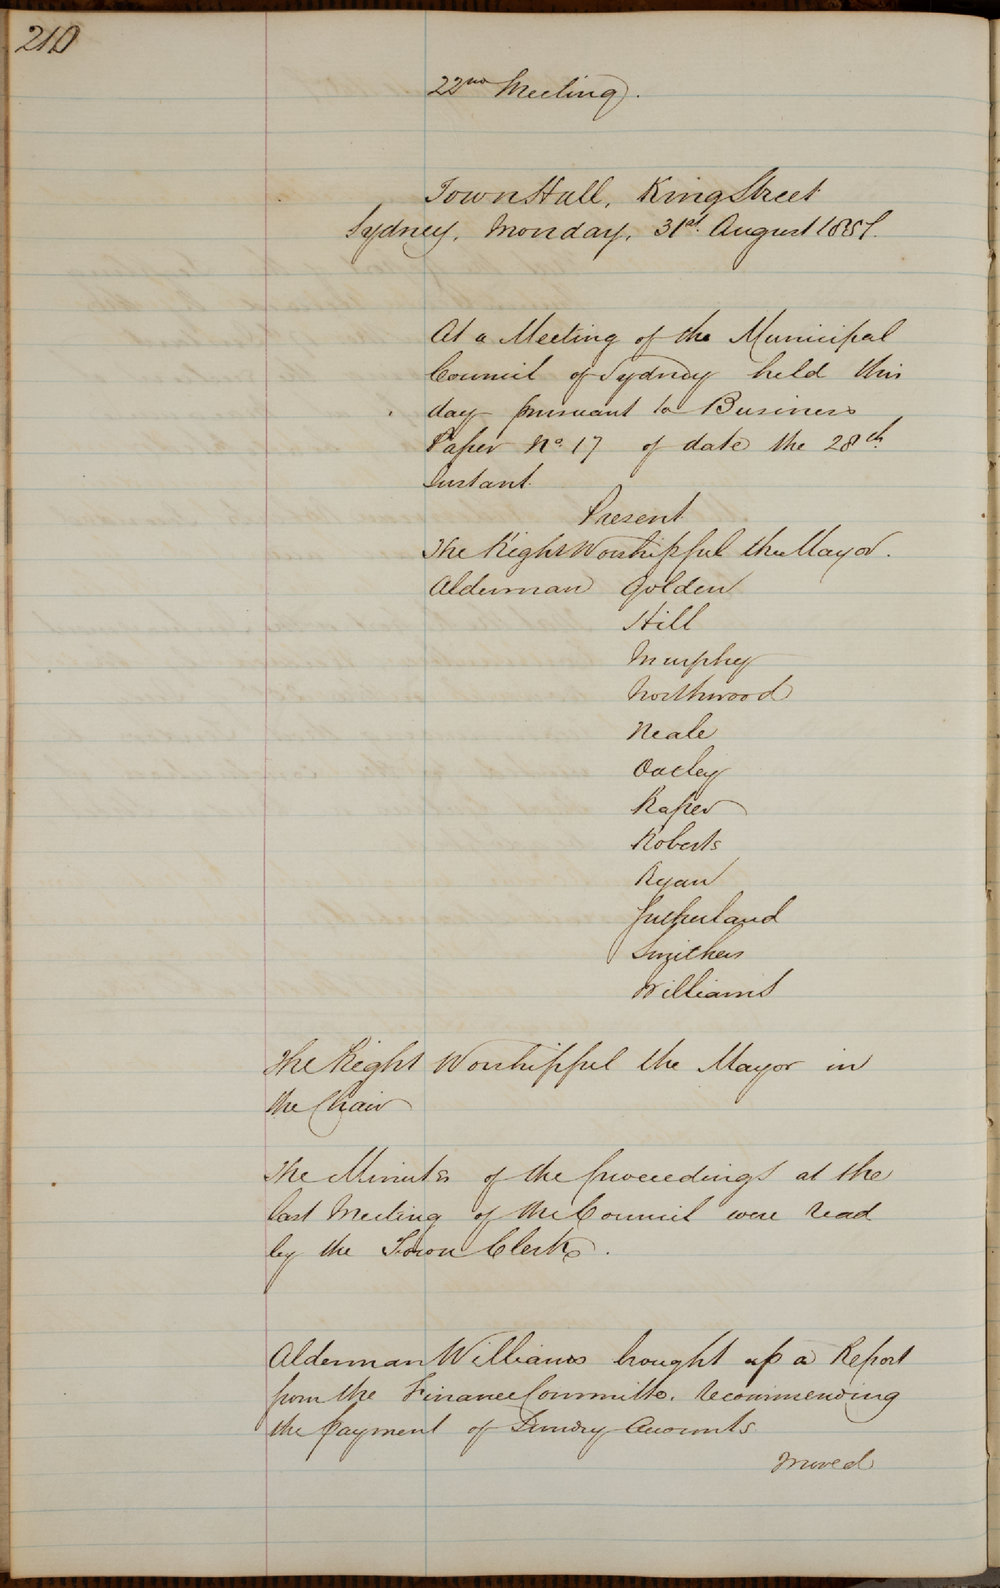 210
22nd Meeting.
Town Hall, King Street
Sydney, Monday, 31st August 1857.
At a Meeting of the Municipal
Council of Sydney held this
day pursuant to Business
Paper No 17 of date the 28th
Instant.
Present
The Right Worshipful the Mayor.
Alderman Golden
Hill
Murphy
Northwood
Neale
Oatley
Raper
Roberts
Ryan
Sutherland
Smithers
Williams
The Right Worshipful the Mayor in
the Chair
The Minutes of the proceedings at the
last Meeting of the Council were read
by the Town Clerk.
Alderman Williams brought up a Report
from the Finance Committe, recommending
the payment of Sundry Accounts
Moved